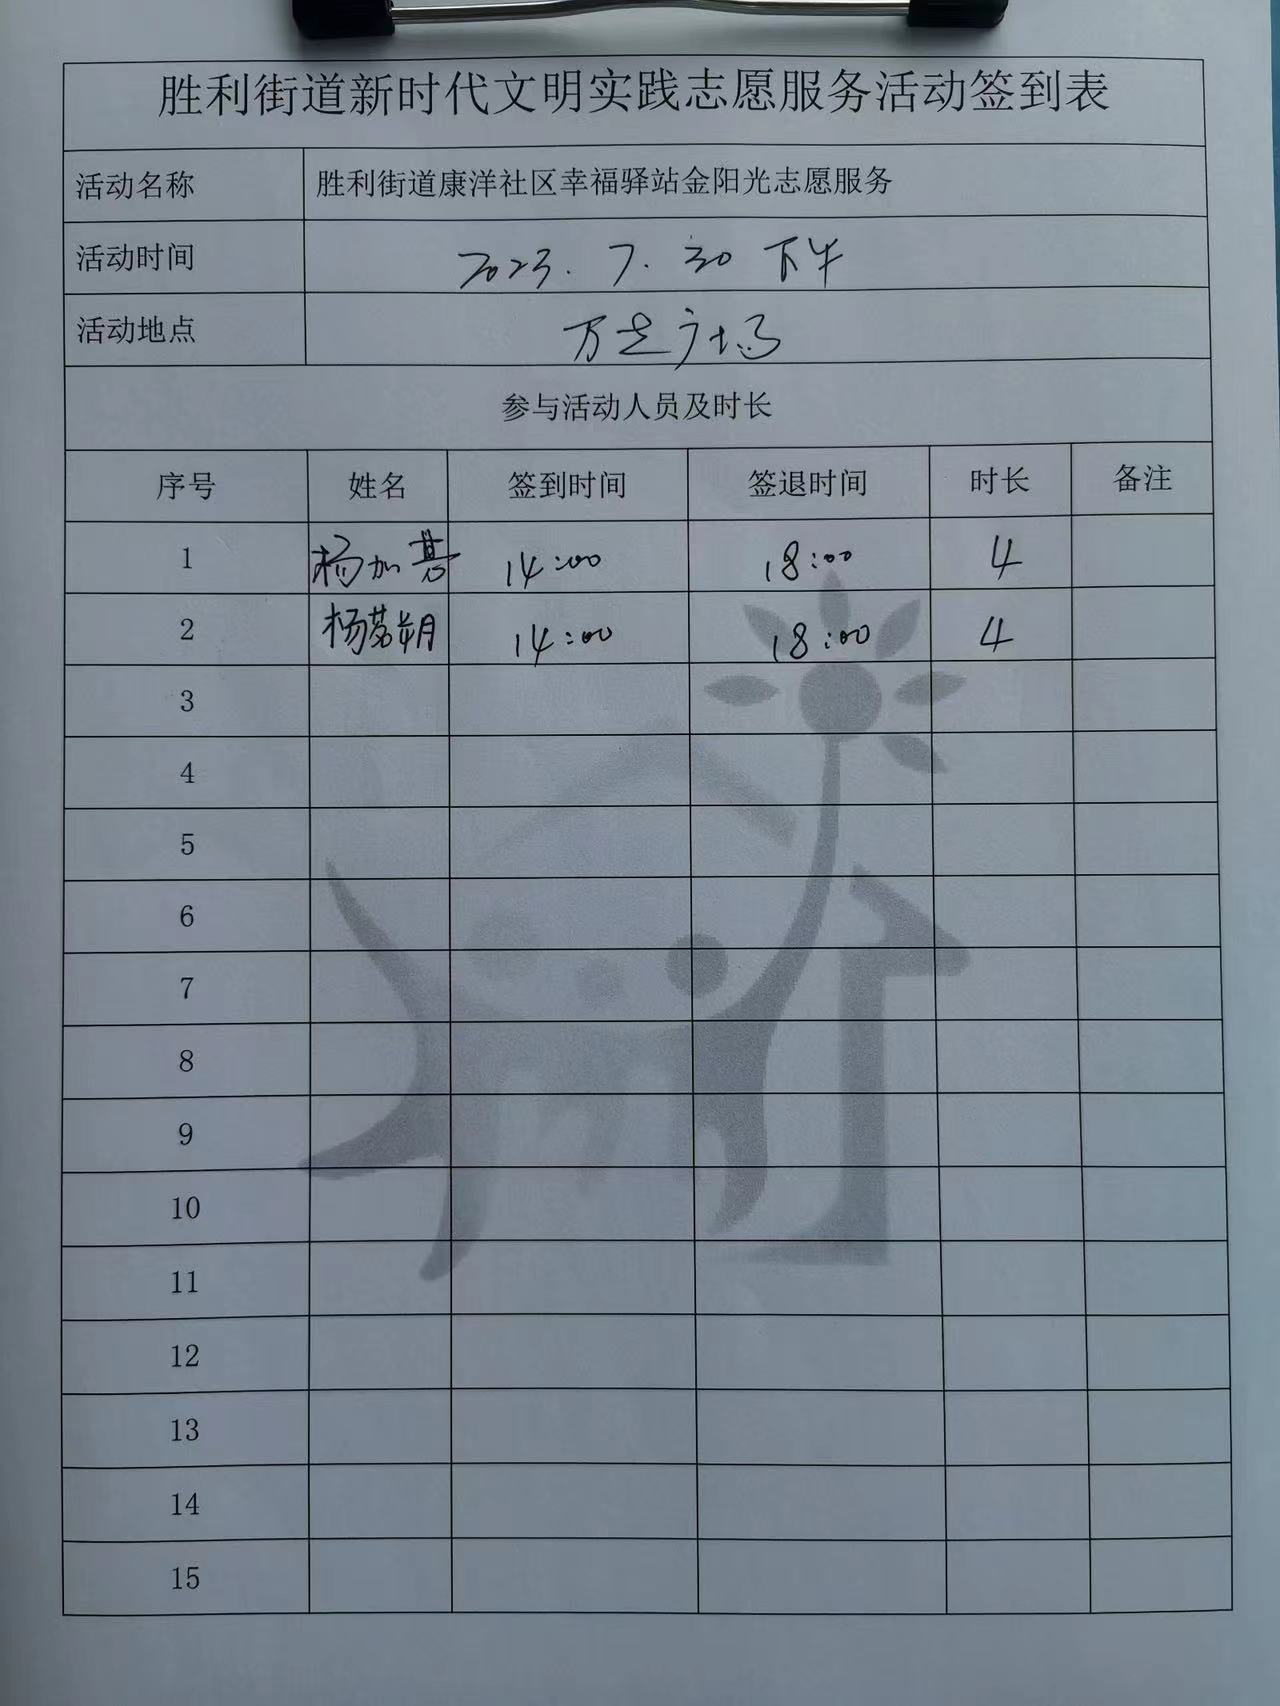 胜利街道新时代文明实践志愿服务活动签到表
活动名称 胜利街道康洋社区幸福驿站金阳光志愿服务
活动时间 2023.7.30 下午
活动地点 万达广场
参与活动人员及时长
序号 姓名 签到时间 签退时间 时长 备注
1 杨加慧 14:00 18:00 4
2 杨茗朔 14:00 18:00 4
3
4
5
6
7
8
9
10
11
12
13
14
15